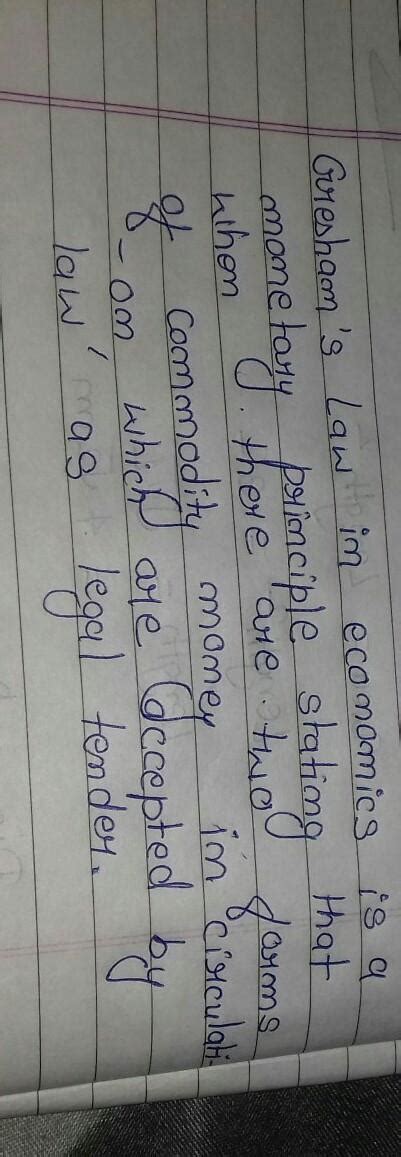 Gresham's Law in economics is a
monetary principle stating that
when there are two forms
of commodity money in circulati-
-on which are accepted by
law as legal tender.